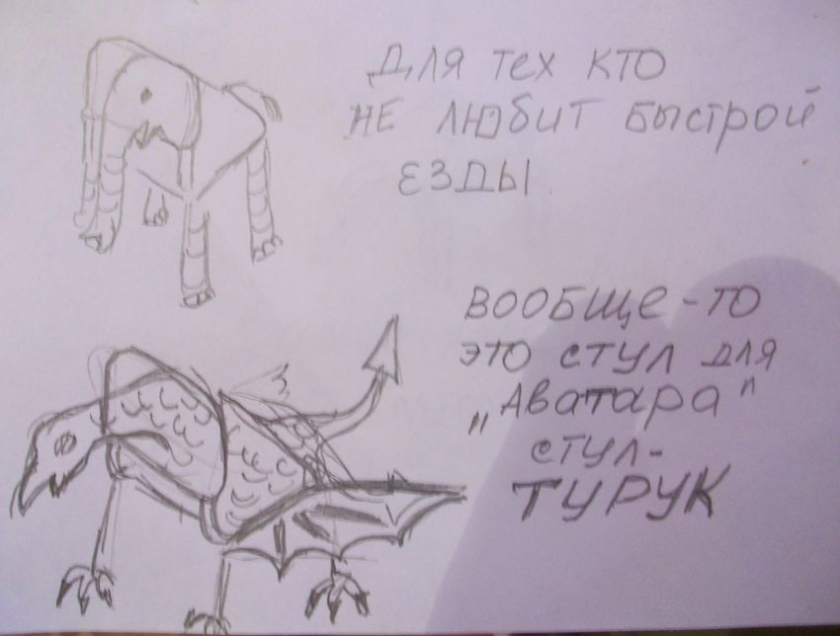 Для тех кто
не любит быстрой
езды
вообще-то
это стул для
„Аватара"
стул-
ТУРУК